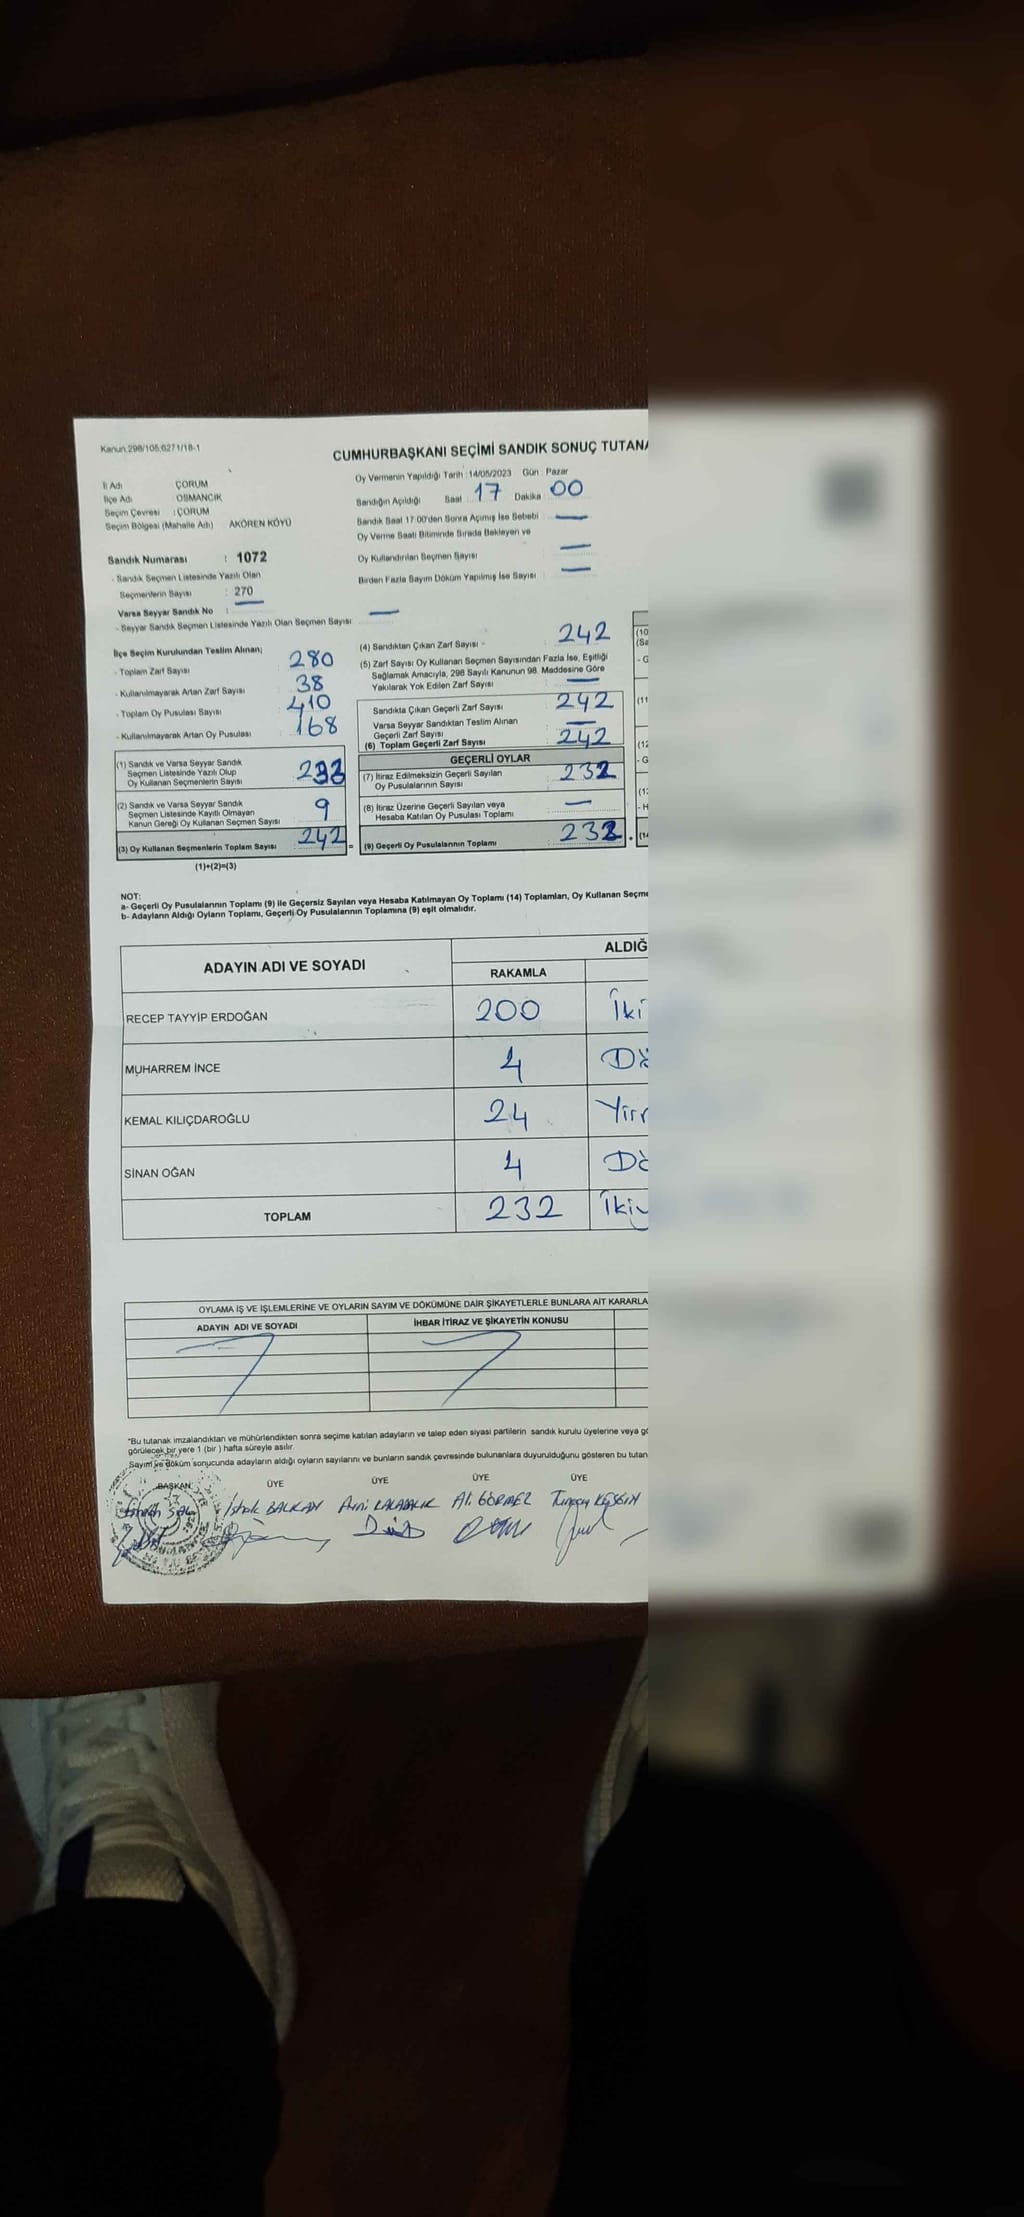 Kanun 298/105,6271/18-1
CUMHURBAŞKANI SEÇİMİ SANDIK SONUÇ TUTANA
İl Adı ÇORUM
İlçe Adı OSMANCIK
Seçim Çevresi : ÇORUM
Seçim Bölgesi (Mahalle Adı) AKÖREN KÖYÜ
Oy Vermenin Yapıldığı Tarih : 14/05/2023 Gün : Pazar
Sandığın Açıldığı Saat 17 Dakika 00
Sandık Saat 17:00'den Sonra Açımış İse Sebebi : —
Oy Verme Saati Bitiminde Sırada Bekleyen ve
Oy Kullandırılan Seçmen Sayısı —
Birden Fazla Sayım Döküm Yapılmış İse Sayısı —
Sandık Numarası : 1072
- Sandık Seçmen Listesinde Yazılı Olan
Seçmenlerin Sayısı : 270
Varsa Seyyar Sandık No :
- Seyyar Sandık Seçmen Listesinde Yazılı Olan Seçmen Sayısı —
İlçe Seçim Kurulundan Teslim Alınan;
- Toplam Zarf Sayısı 280
- Kullanılmayarak Artan Zarf Sayısı 38
- Toplam Oy Pusulası Sayısı 410
- Kullanılmayarak Artan Oy Pusulası 168
(1) Sandık ve Varsa Seyyar Sandık
Seçmen Listesinde Yazılı Olup
Oy Kullanan Seçmenlerin Sayısı 233
(2) Sandık ve Varsa Seyyar Sandık
Seçmen Listesinde Kayıtlı Olmayan
Kanun Gereği Oy Kullanan Seçmen Sayısı 9
(3) Oy Kullanan Seçmenlerin Toplam Sayısı 242 =
(1)+(2)=(3)
(4) Sandıktan Çıkan Zarf Sayısı - 242
(5) Zarf Sayısı Oy Kullanan Seçmen Sayısından Fazla İse, Eşitliği
Sağlamak Amacıyla, 298 Sayılı Kanunun 98. Maddesine Göre
Yakılarak Yok Edilen Zarf Sayısı —
Sandıkta Çıkan Geçerli Zarf Sayısı 242
Varsa Seyyar Sandıktan Teslim Alınan
Geçerli Zarf Sayısı —
(6) Toplam Geçerli Zarf Sayısı 242
GEÇERLİ OYLAR
(7) İtiraz Edilmeksizin Geçerli Sayılan
Oy Pusulalarının Sayısı 232
(8) İtiraz Üzerine Geçerli Sayılan veya
Hesaba Katılan Oy Pusulası Toplamı —
(9) Geçerli Oy Pusulalarının Toplamı 232
NOT:
a- Geçerli Oy Pusulalarının Toplamı (9) ile Geçersiz Sayılan veya Hesaba Katılmayan Oy Toplamı (14) Toplamları, Oy Kullanan Seçme
b- Adayların Aldığı Oyların Toplamı, Geçerli Oy Pusulalarının Toplamına (9) eşit olmalıdır.
ADAYIN ADI VE SOYADI ALDIĞ
RAKAMLA
RECEP TAYYİP ERDOĞAN 200 İki
MUHARREM İNCE 4 Dö
KEMAL KILIÇDAROĞLU 24 Yir
SİNAN OĞAN 4 Dö
TOPLAM 232 İkiy
OYLAMA İŞ VE İŞLEMLERİNE VE OYLARIN SAYIM VE DÖKÜMÜNE DAİR ŞİKAYETLERLE BUNLARA AİT KARARLA
ADAYIN ADI VE SOYADI İHBAR İTİRAZ VE ŞİKAYETİN KONUSU
*Bu tutanak imzalandıktan ve mühürlendikten sonra seçime katılan adayların ve talep eden siyasi partilerin sandık kurulu üyelerine veya gö
görülecek bir yere 1 (bir ) hafta süreyle asılır.
Sayım ve döküm sonucunda adayların aldığı oyların sayılarını ve bunların sandık çevresinde bulunanlara duyurulduğunu gösteren bu tutan
BAŞKAN ÜYE ÜYE ÜYE ÜYE
İshak BALKAN Avni KALABALIK Ali GÖRMEZ Tuncay KESKİN